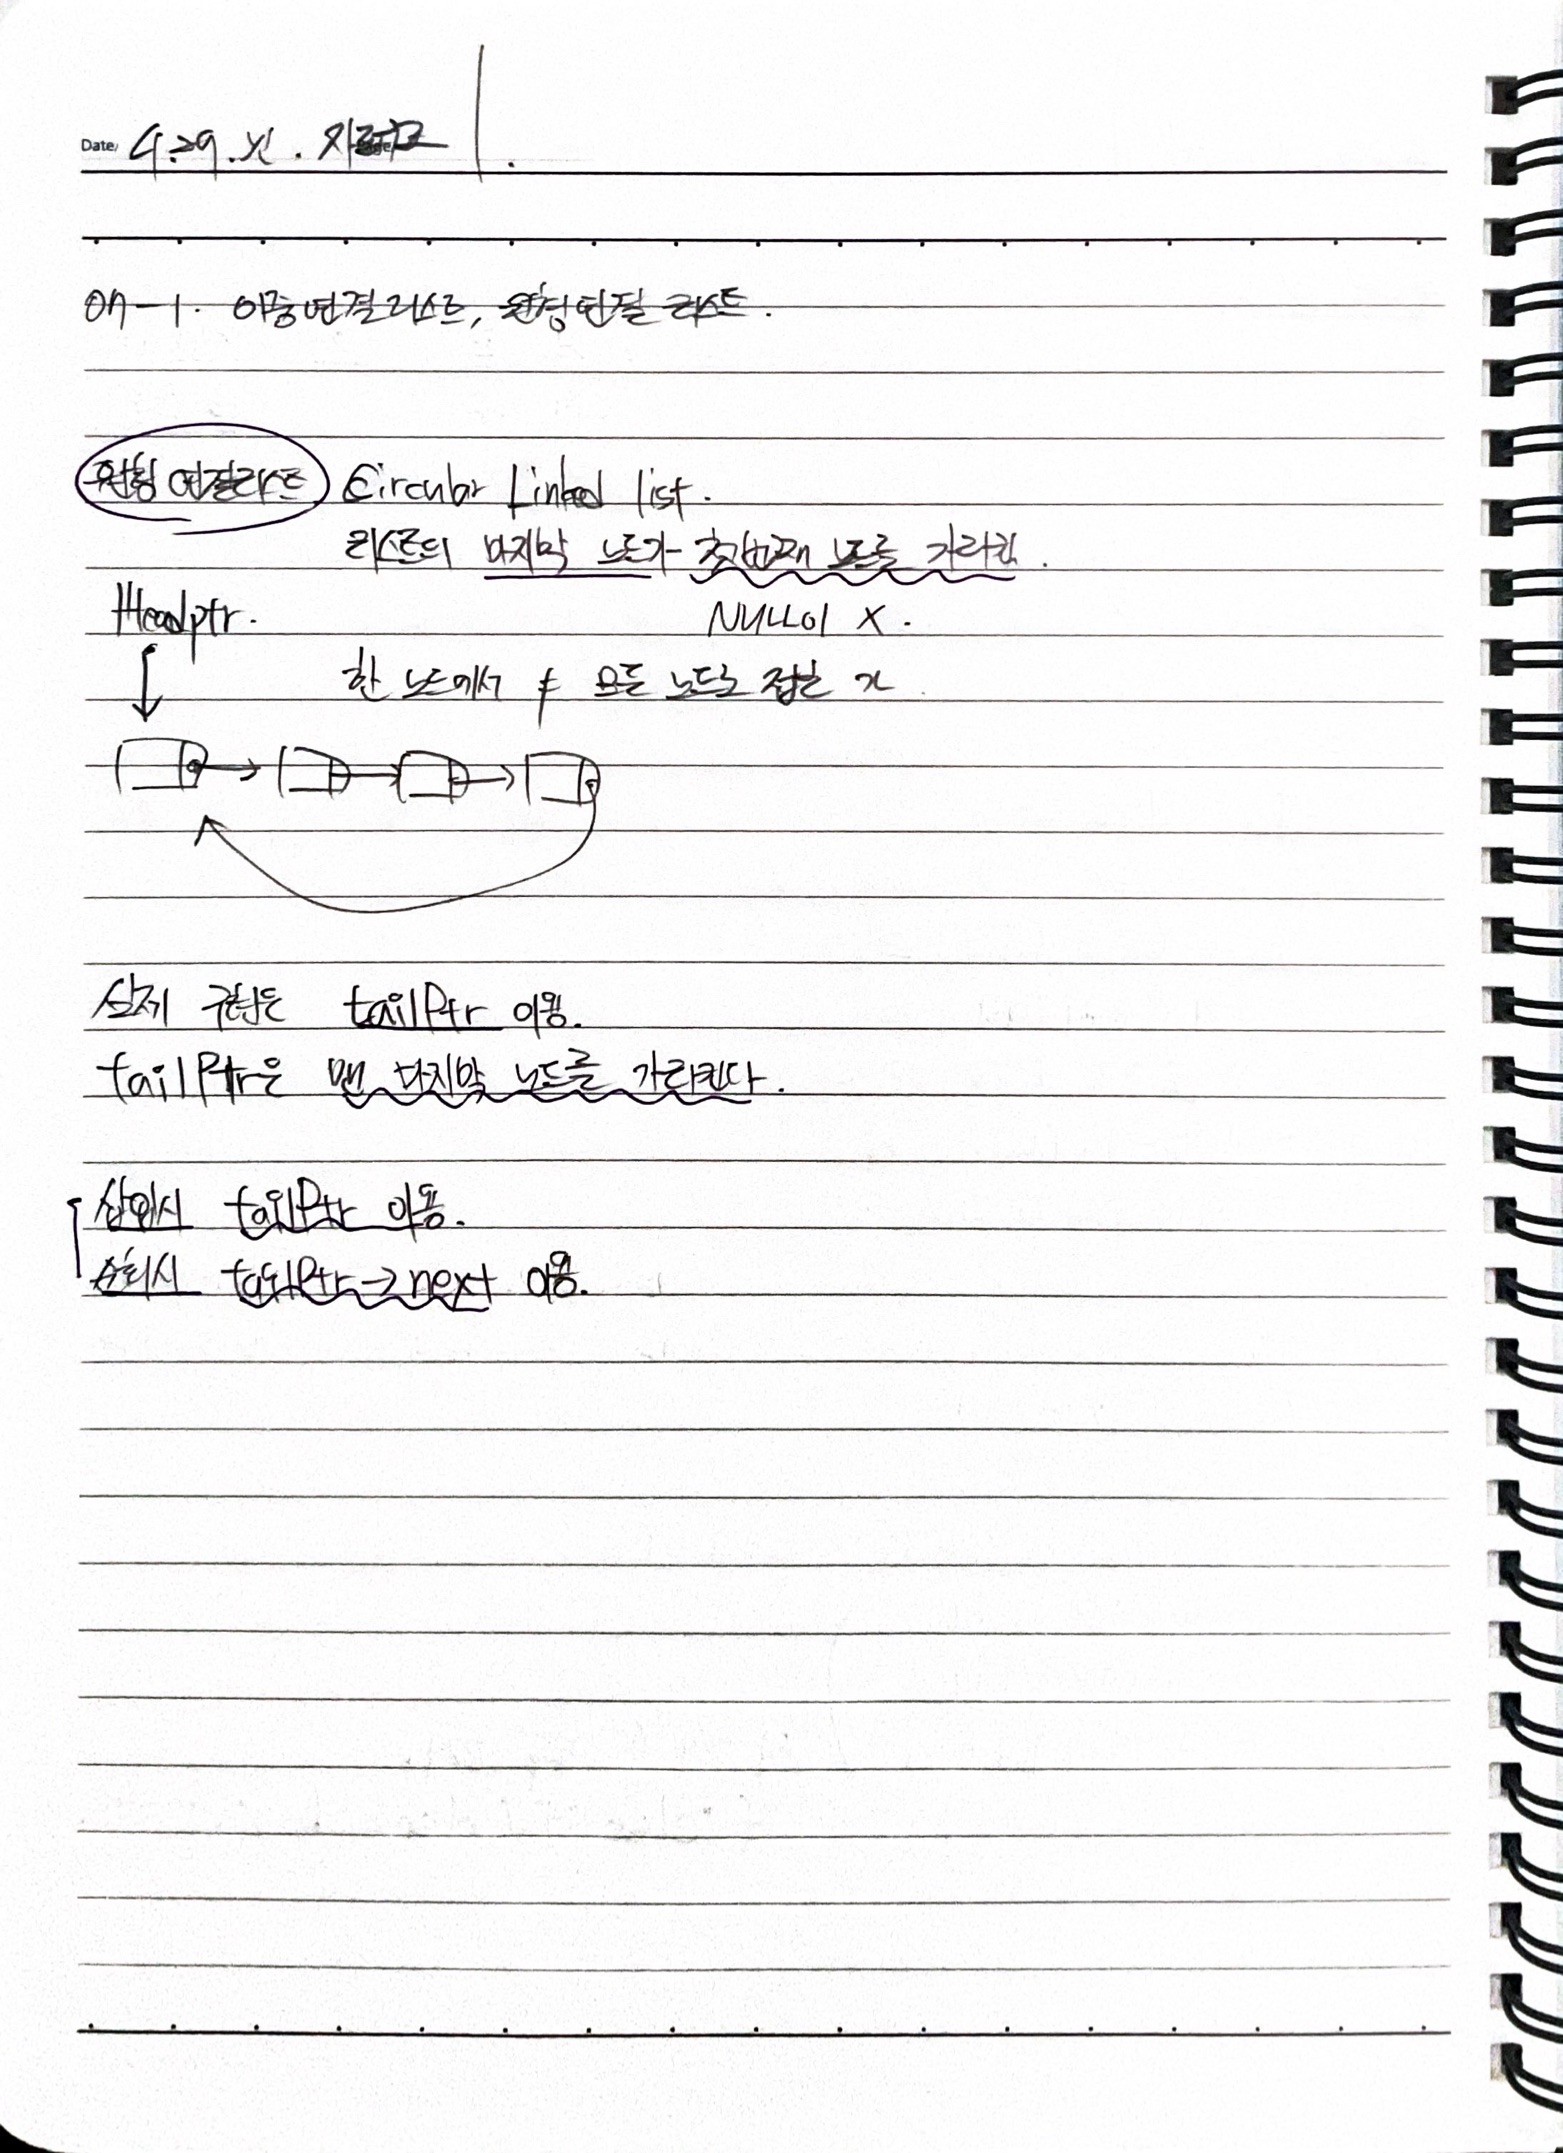 Date 4.29.
07-1. 이중연결리스트, 원형연결 리스트.
원형 연결리스트 Circular Linked list.
리스트의 마지막 노드가 첫번째 노드를 가리킴.
Headptr.
NULL이 X.
한 노드에서 모든 노드로 접근
실제 구현은 tailPtr 이용.
tailPtr은 맨 마지막 노드를 가리킨다.
삽입시 tailPtr 이용.
순회시 tailPtr->next 이용.